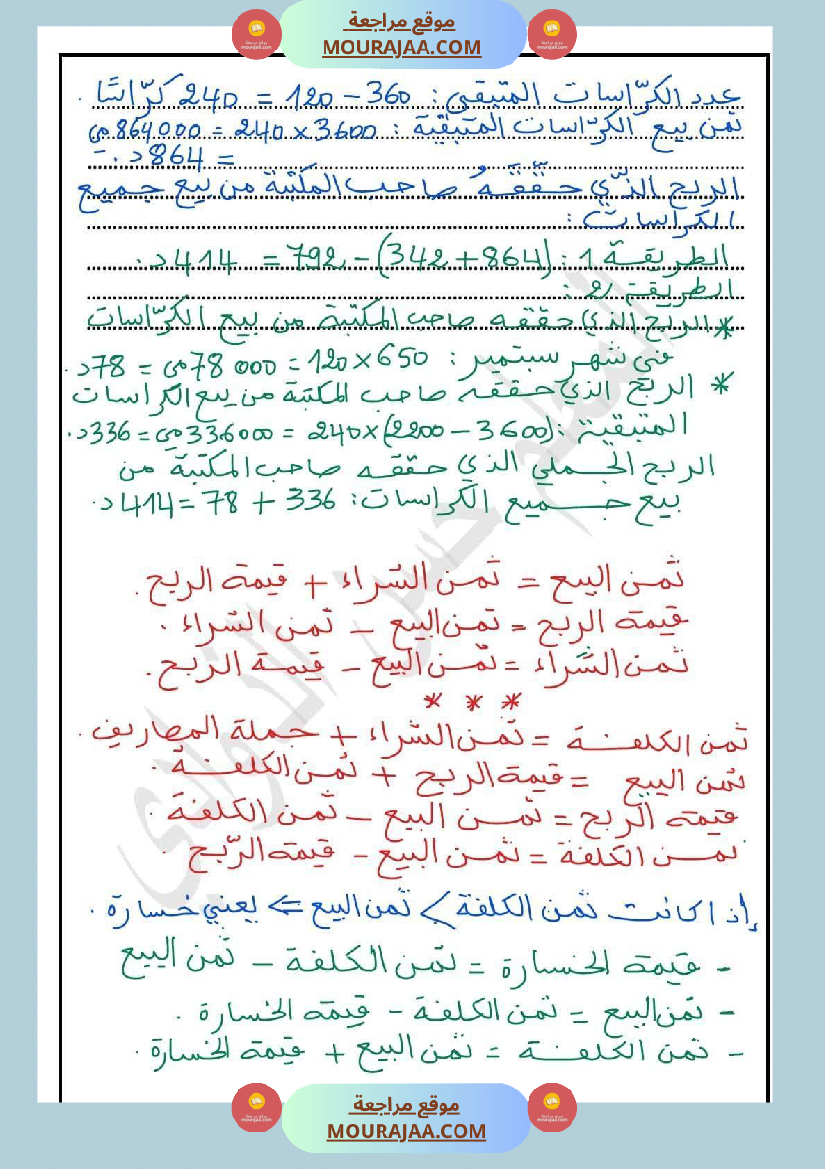 موقع مراجعة
MOURAJAA.COM
عدد الكرّاسات المتبقى: 360 - 120 = 240 كرّاسًا .
ثمن بيع الكرّاسات المتبقية : 3600 × 240 = 864000 مي
= 864 د .
الربح الذّي حقّقَهُ صاحب المكتبة من بيع جميع
الكراسات :
الطريقة 1 : (864 + 342) - 792 = 414 د .
الطريقة 2 :
* الربح الذي حققه صاحب المكتبة من بيع الكرّاسات
في شهر سبتمبر : 650 × 120 = 78 000 مي = 78 د .
* الربح الذي حققه صاحب المكتبة من بيع الكراسات
المتبقية : (3600 - 2200) × 240 = 336000 مي = 336 د .
الربح الجملي الذي حققه صاحب المكتبة من
بيع جميع الكراسات : 336 + 78 = 414 د .
ثمن البيع = ثمن الشراء + قيمة الربح .
قيمة الربح = ثمن البيع - ثمن الشراء .
ثمن الشراء = ثمن البيع - قيمة الربح .
* * *
ثمن الكلفة = ثمن الشراء + جملة المصاريف .
ثمن البيع = قيمة الربح + ثمن الكلفة .
قيمة الربح = ثمن البيع - ثمن الكلفة .
ثمن الكلفة = ثمن البيع - قيمة الرّبح
إذا كانت ثمن الكلفة > ثمن البيع => يعني خسارة .
- قيمة الخسارة = ثمن الكلفة - ثمن البيع
- ثمن البيع = ثمن الكلفة - قيمة الخسارة .
- ثمن الكلفة = ثمن البيع + قيمة الخسارة .
موقع مراجعة
MOURAJAA.COM